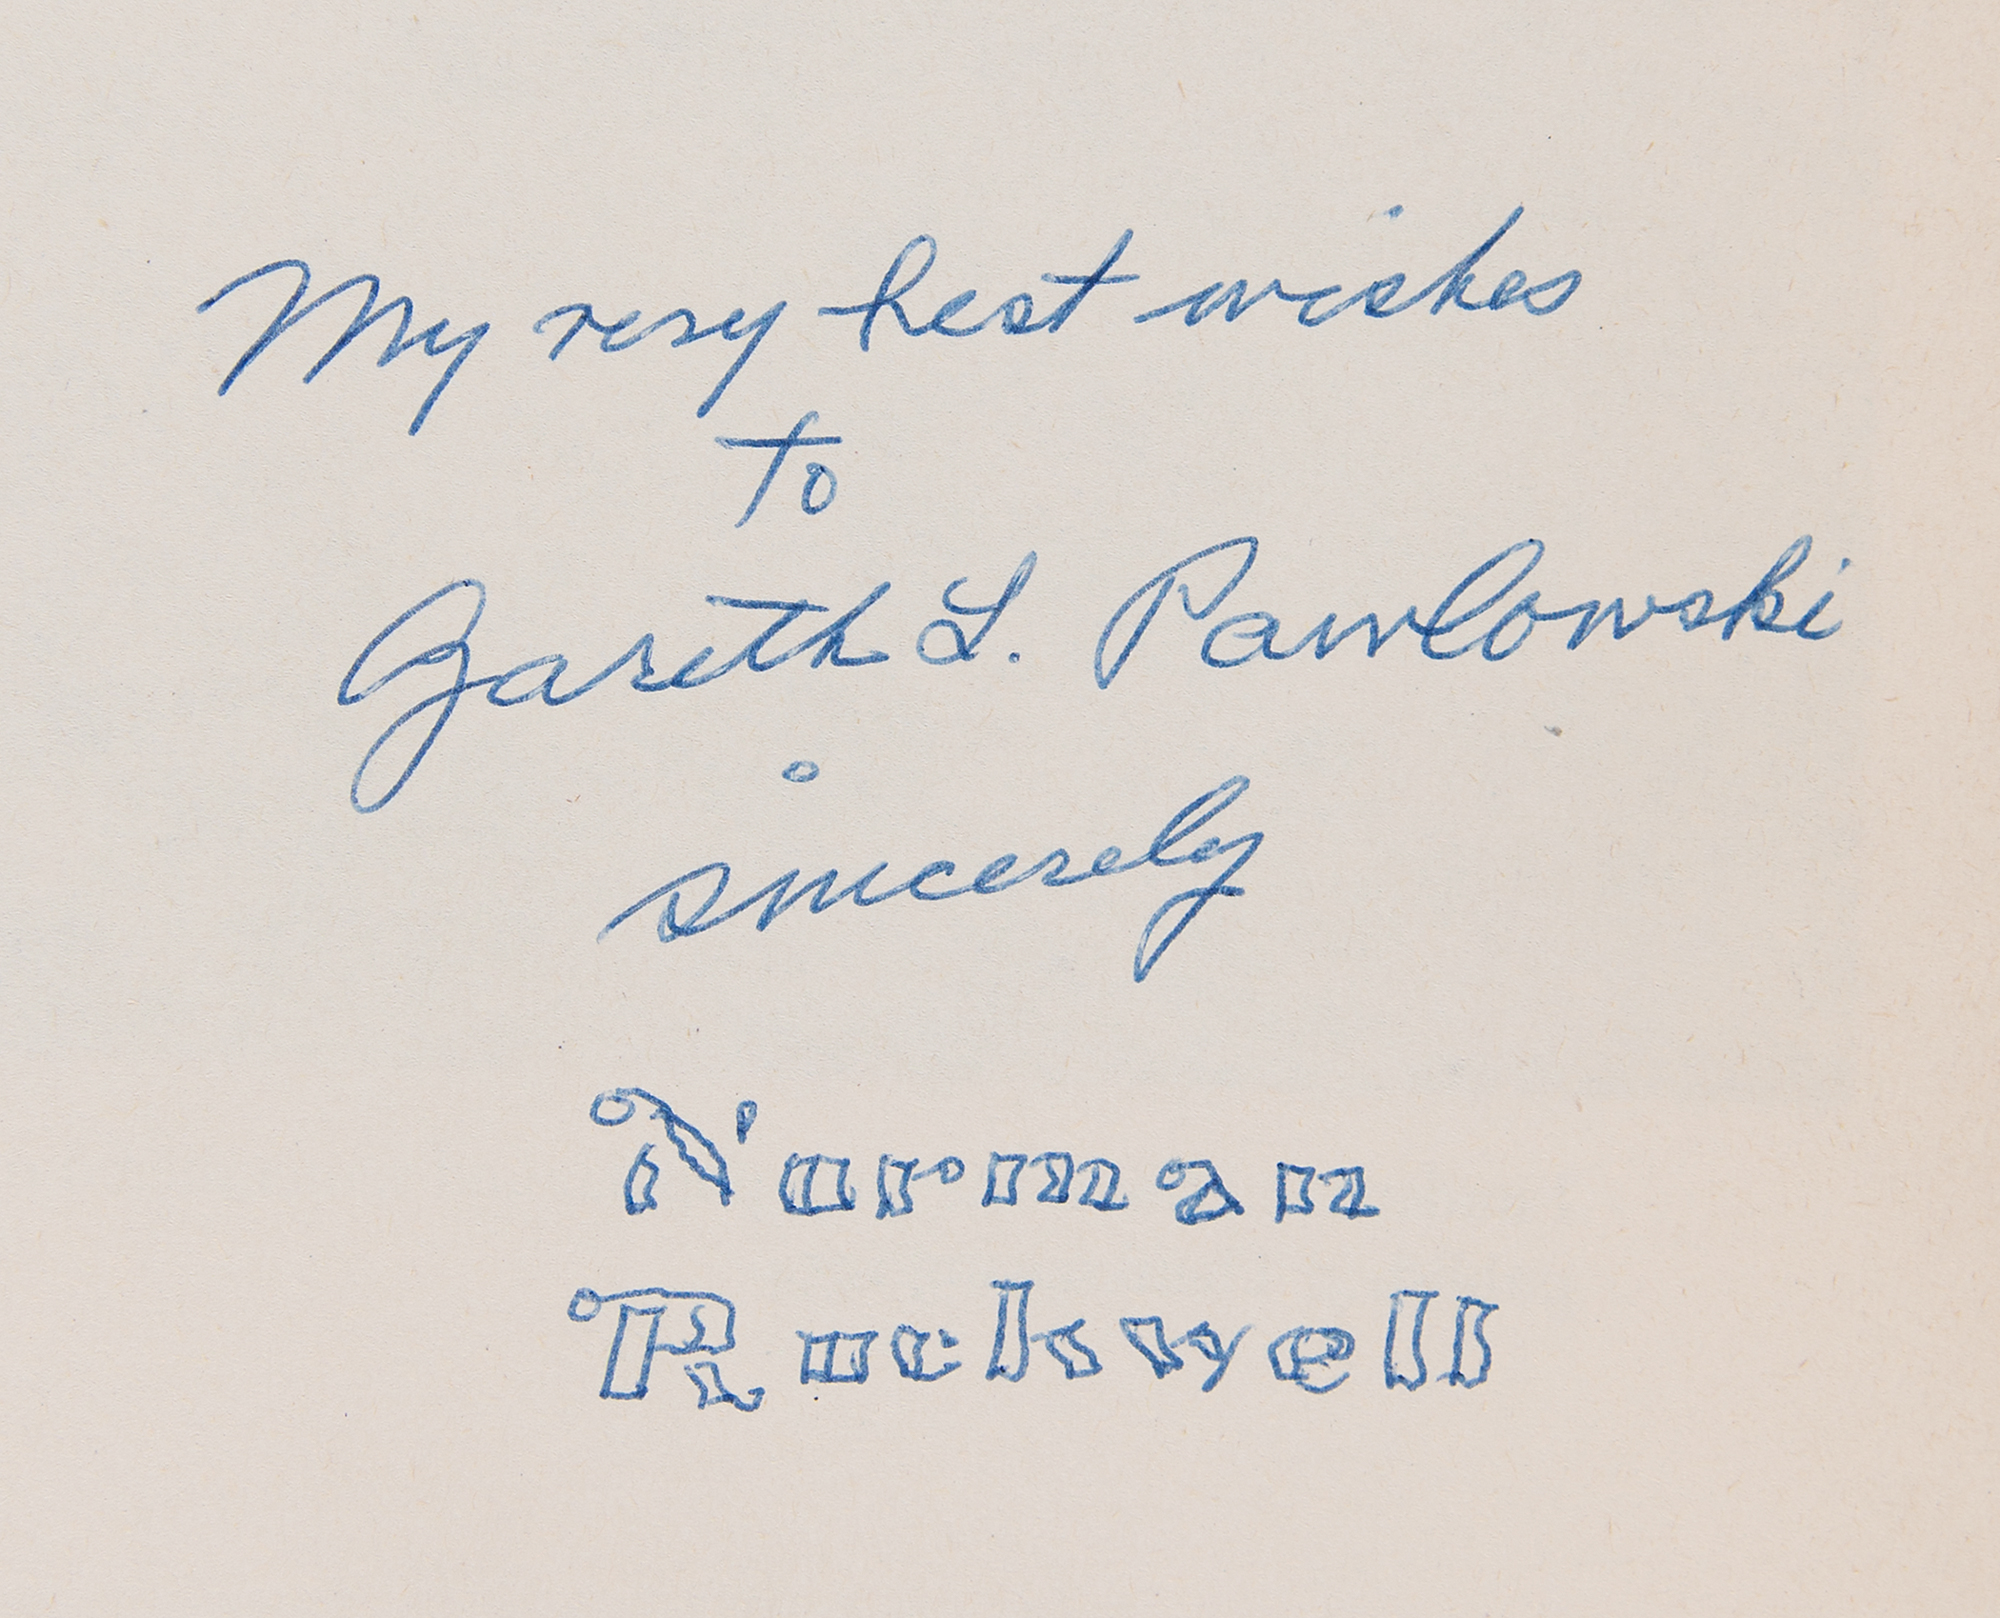 My very best wishes
to
Gareth L. Pawlowski
sincerely
Norman
Rockwell